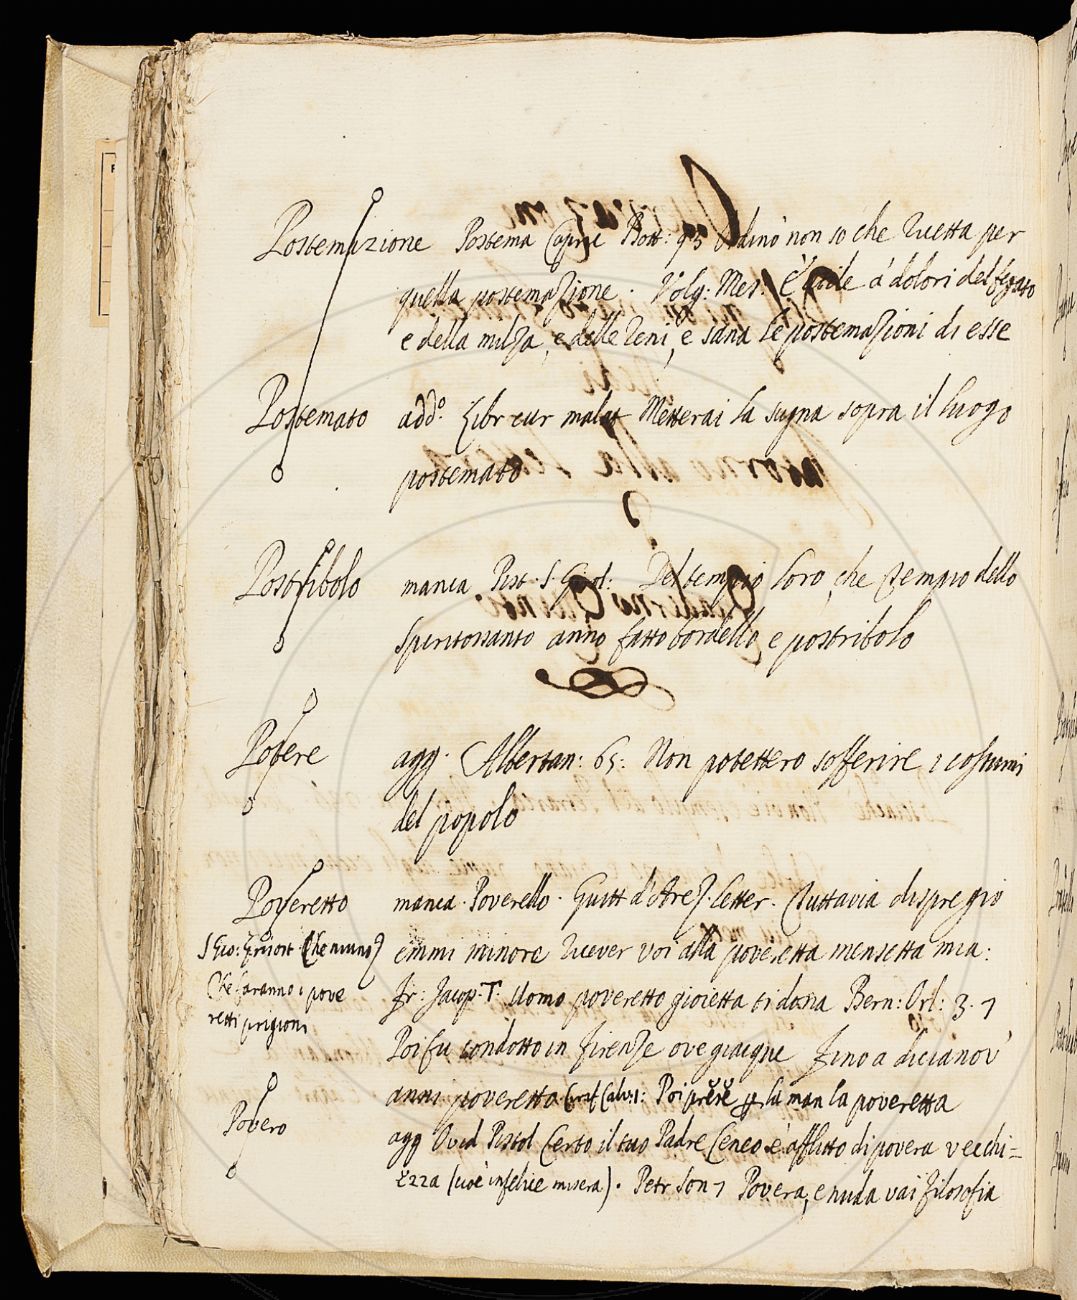 Postemazione Postema Capne Bott: 95 Ordinò non so che ricetta per
quella postemazione. Volg: Mes: è utile à dolori del fegato
e della milza, e delle reni, e sana le postemazioni di esse
Postemato add.° Libr cur malat Metterai la sugna sopra il luogo
postemato
Postribolo manca Pist. S. Girol: Del tempio loro, che tempio dello
Spiritossanto anno fatto bordello e postribolo
Potere agg. Albertan: 65: Non potettero sofferire i costumi
del popolo
Poveretto manca. Poverello. Guitt d'Arez. letter. Tuttavia dispregio
emmi minore ricever voi alla poveretta mensetta mia:
Fr: Jacop. T. Uomo poveretto gioietta ti dona Bern: Orl: 3. 7
Poi fu condotto in Firenze ove giacque Fino a dicianov'
anni poveretta. Calv: 1: Poi prese la man la poveretta
S Gio: Grisost Che niuno
Che faranno i pove
retti prigioni
Povero agg Ovid Pistol Certo il tuo Padre Ceneo è afflitto di povera vecchi=
ezza (cioè infelice misera). Petr Son 7 Povera, e nuda vai filosofia